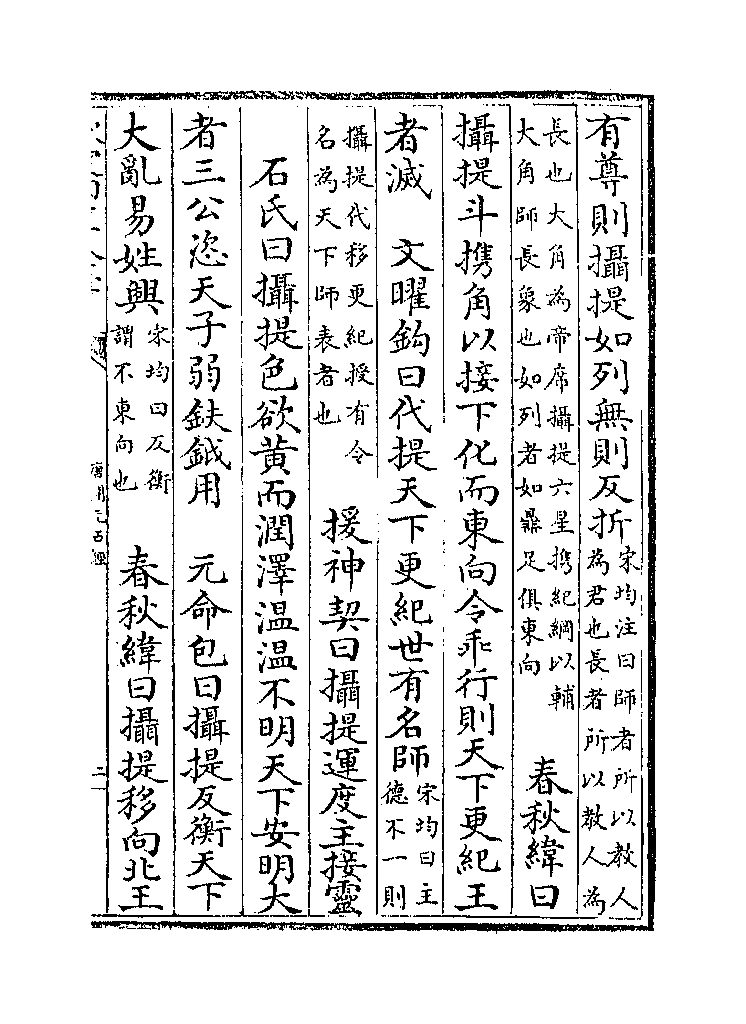 有尊則攝提如列無則反折
宋均注曰師者所以教人
為君也長者所以教人為
長也大角為帝席攝提六星携紀綱以輔
大角師長衆也如列者如鼎足俱東向
春秋緯曰
攝提斗携角以接下化而東向令乖行則天下更紀王
者滅　文曜鈎曰代提天下更紀世有名師
宋均曰主
德不一則
攝提代移更紀授有令
名為天下師表者也
援神契曰攝提運度主接靈
石氏曰攝提色欲黄而潤澤温温不明天下安明大
者三公恣天子弱鈇鉞用　元命包曰攝提反衡天下
大亂易姓興
宋均曰反衡
謂不東向也
春秋緯曰攝提移向北王